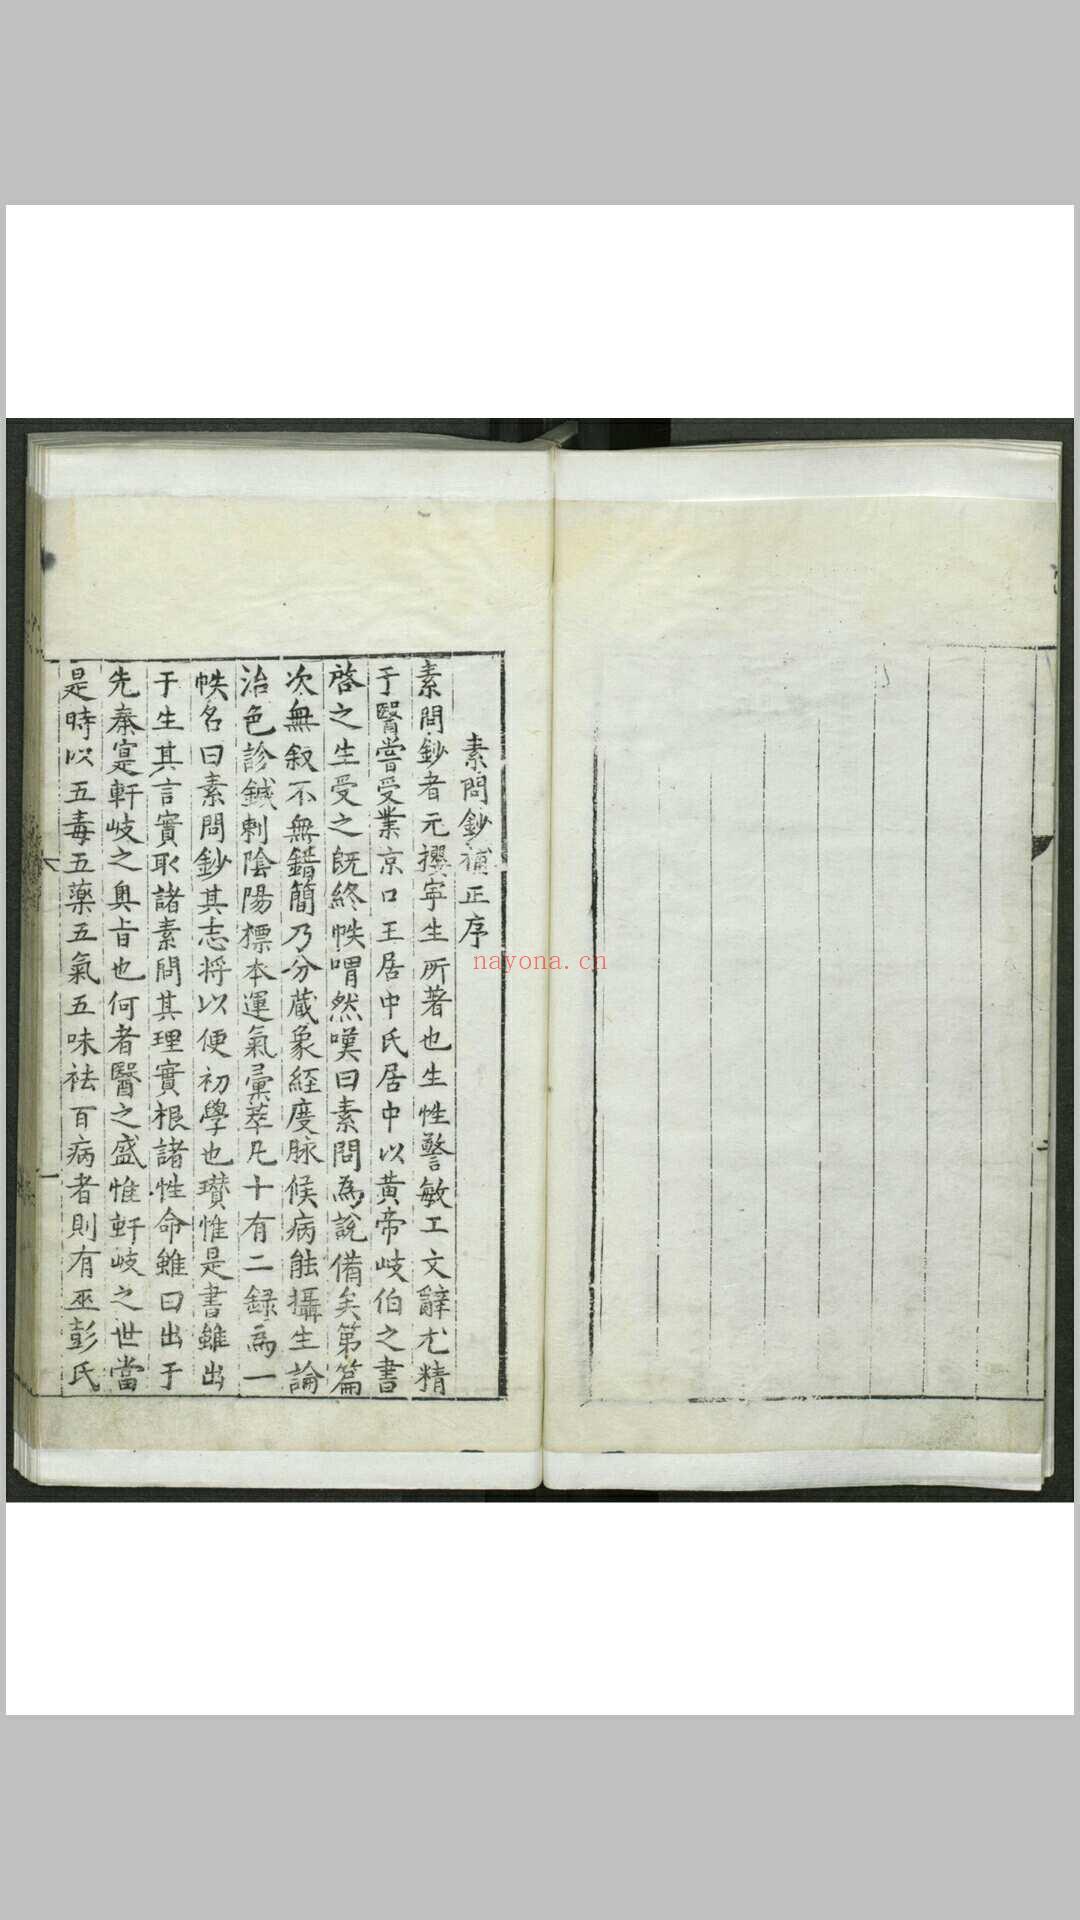 素問鈔補正序
素問鈔者元攖寧生所著也生性警敏工文辭尤精
于醫嘗受業京口王居中氏居中以黄帝岐伯之書
啓之生受之既終帙喟然嘆曰素問為說備矣第篇
次無叙不無錯簡乃分蔵象經度脉候病能攝生論
治色診鍼刺陰陽標本運氣彙萃凢十有二録為一
帙名曰素問鈔其志将以便初學也瓚惟是書雖出
于生其言實取諸素問其理實根諸性命雖曰出于
先秦寔軒岐之奥旨也何者醫之盛惟軒岐之世當
是時以五毒五藥五氣五味袪百病者則有巫彭氏
nayona.cn